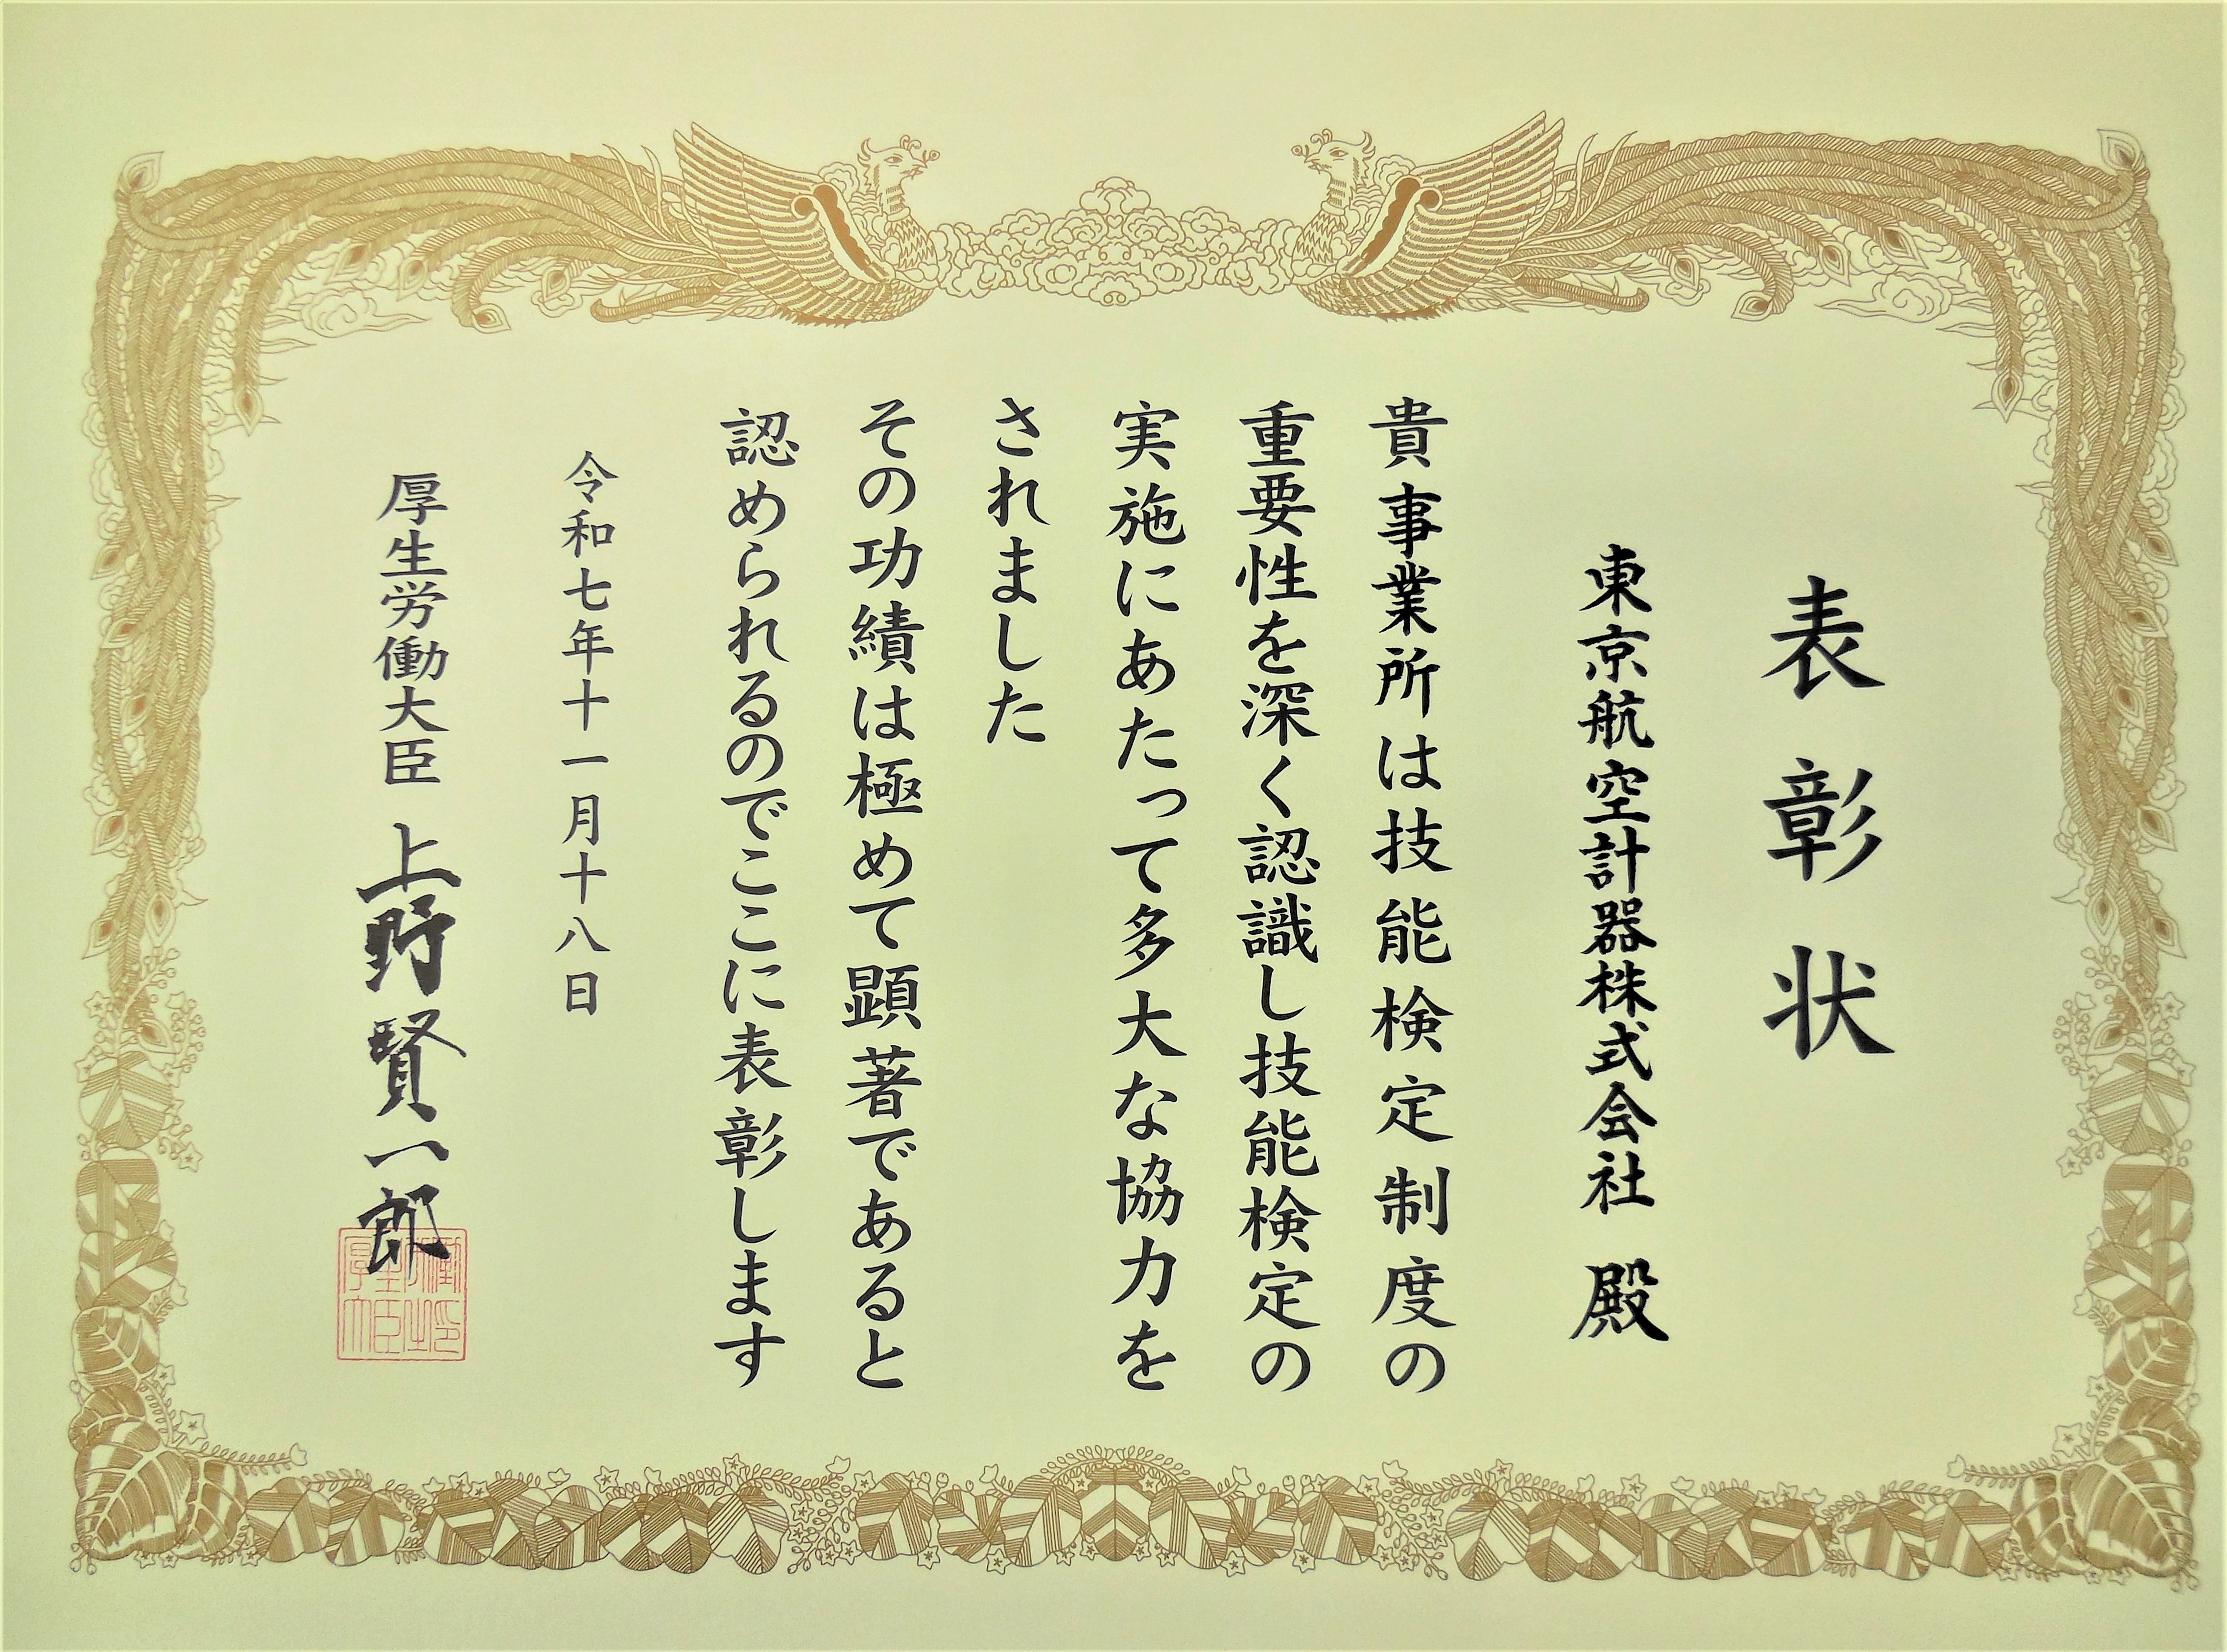 表彰状
東京航空計器株式会社 殿
貴事業所は技能検定制度の
重要性を深く認識し技能検定の
実施にあたって多大な協力を
されました
その功績は極めて顕著であると
認められるのでここに表彰します
令和七年十一月十八日
厚生労働大臣 上野賢一郎